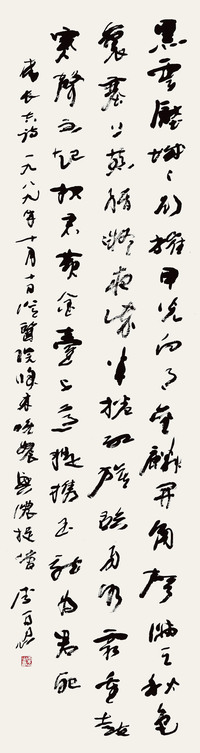 黑雲壓城々欲摧甲光向日金鱗開角聲滿天秋色
裏塞上燕脂凝夜紫半捲紅旗臨易水霜重鼓
寒聲不起報君黃金臺上意提攜玉龍為君死
李長吉詩一九八九年十月十日醫院歸來晚餐興濃捉管李百忍